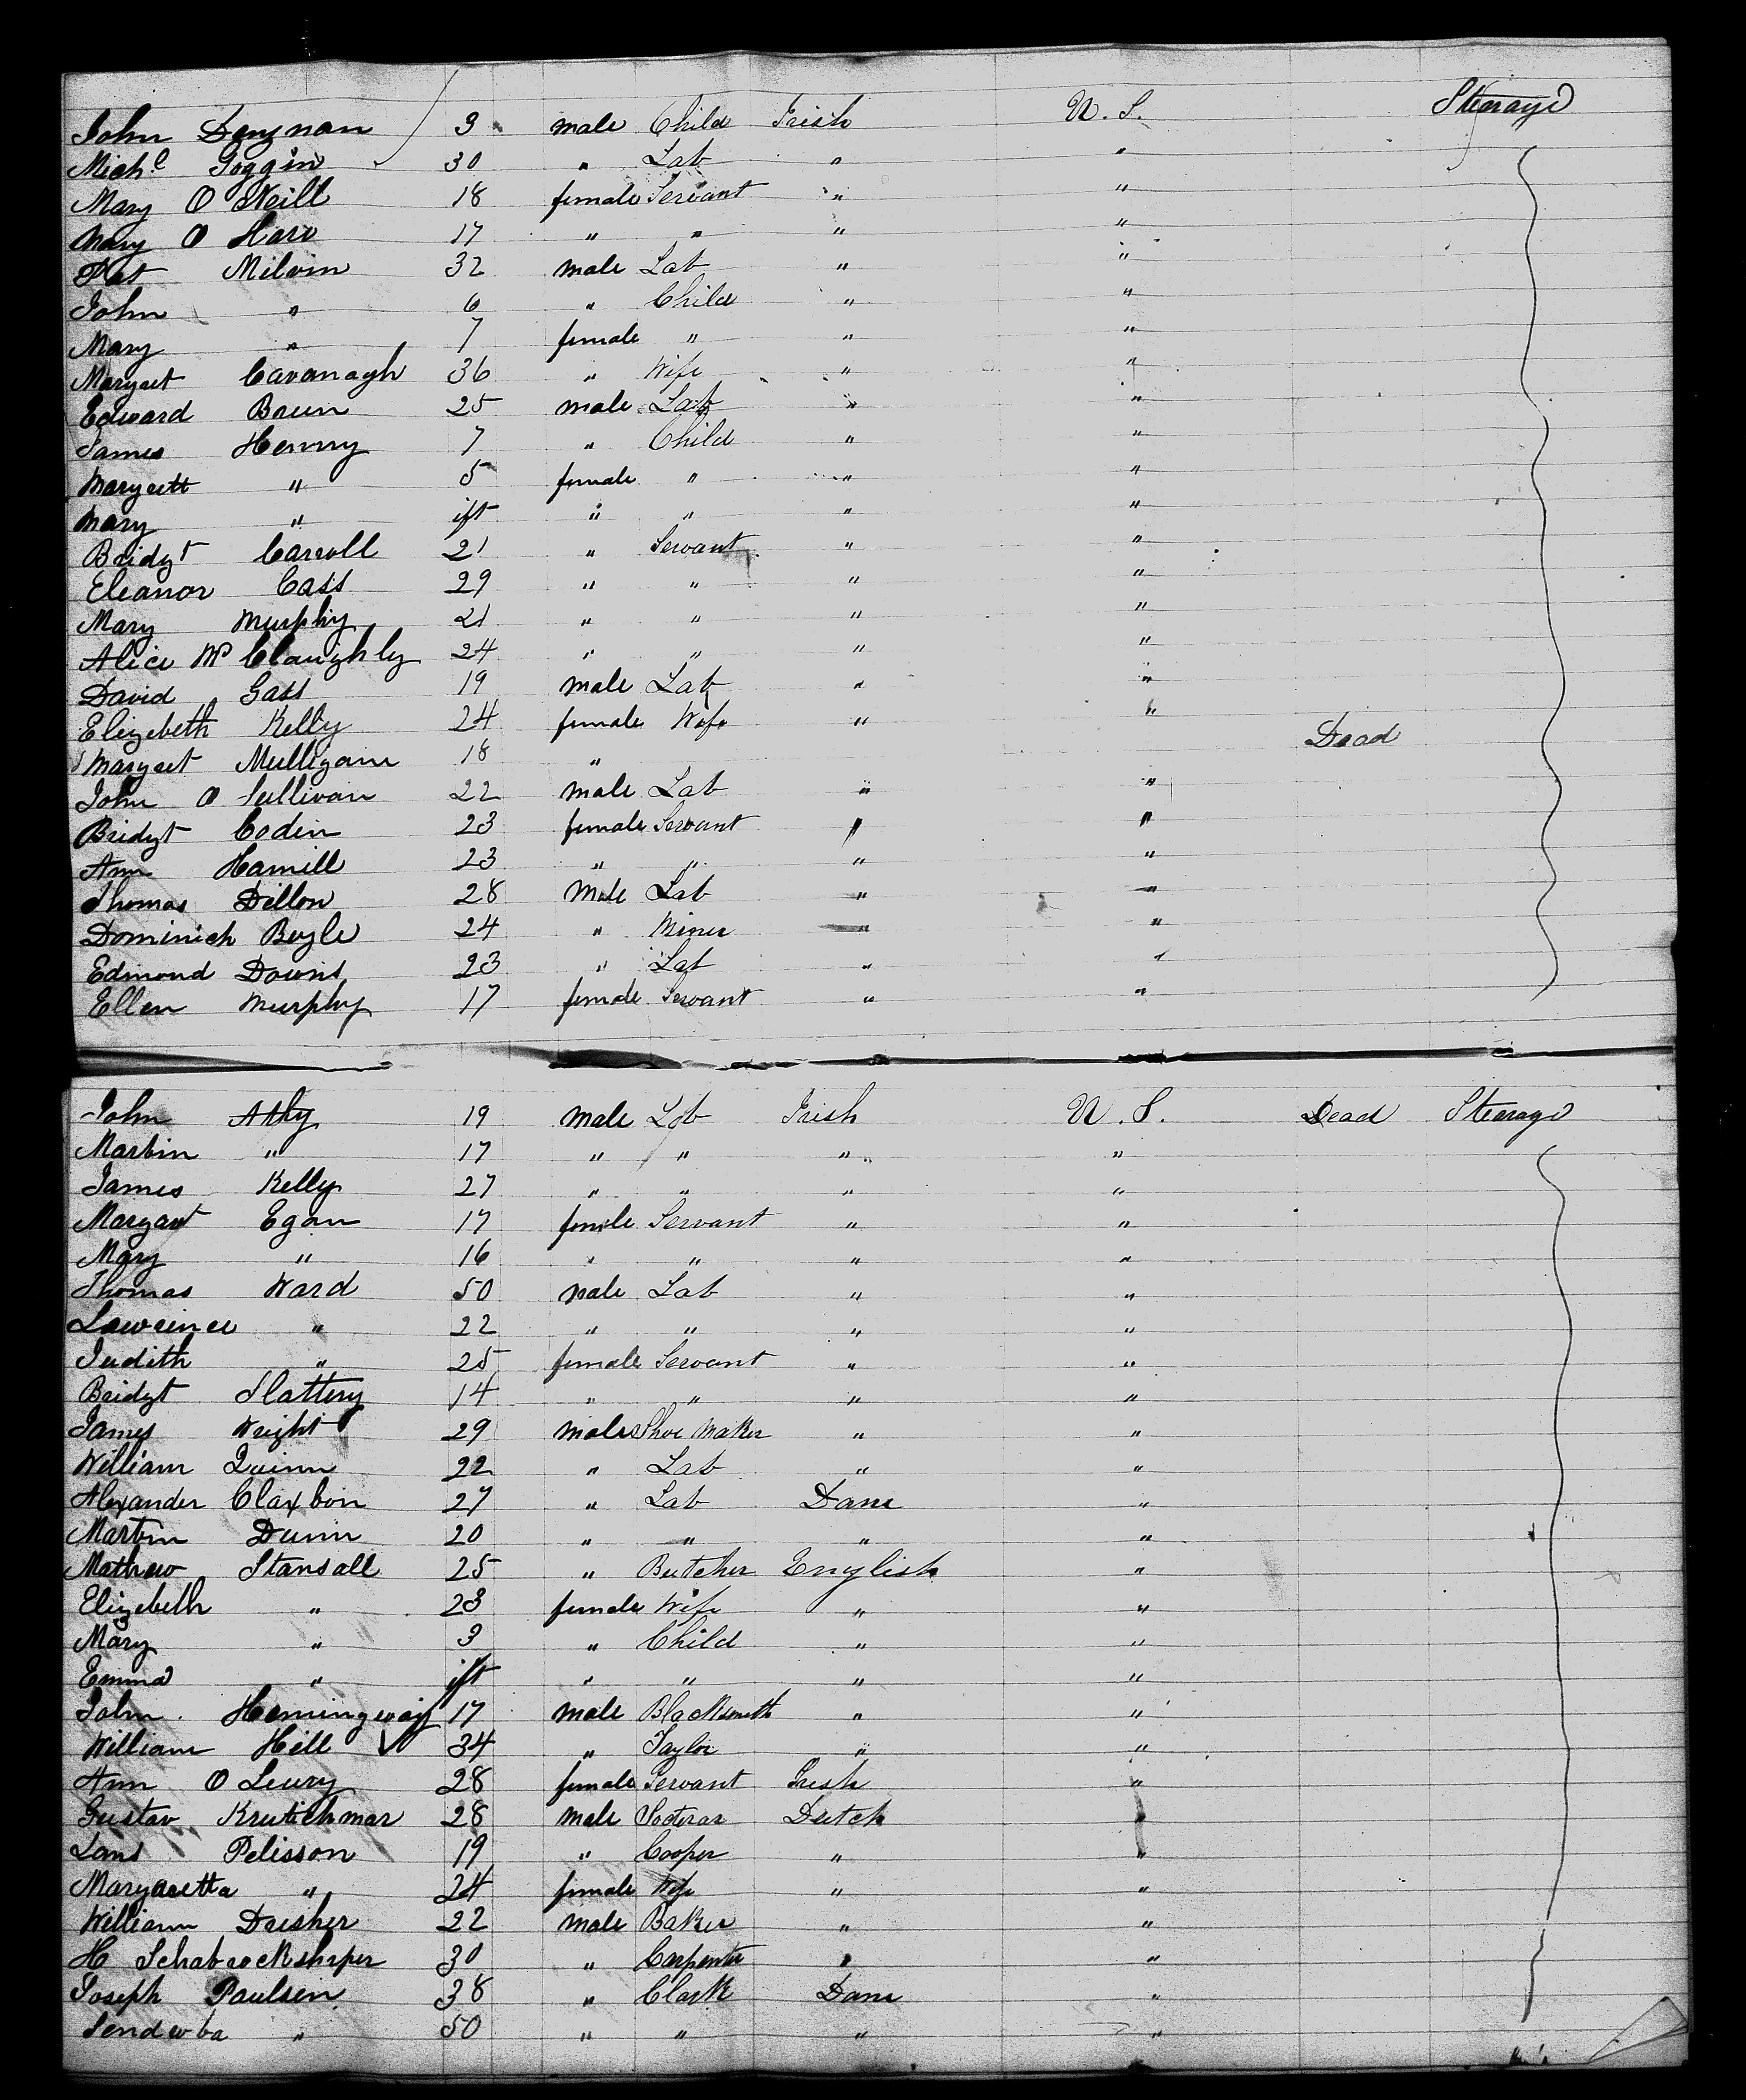 John Degnan 3 male Child Irish U. S. Stearage
Michl Goggin 30 " Lab " "
Mary O Neill 18 female Servant " "
Mary O Hare 17 " " " "
Pat Milvin 32 male Lab " "
John " 6 " Child " "
Mary " 7 female " " "
Margaet Cavanagh 36 " Wife " "
Edward Breen 25 male Lab " "
James Henry 7 " Child " "
Margaett " 5 female " " "
Mary " ift " " " "
Bridgt Carroll 21 " Servant " "
Eleanor Cass 29 " " " "
Mary Murphy 21 " " " "
Alice Mc Claughly 24 " " " "
David Gass 19 male Lab " "
Elizebeth Kelly 24 female Wife " "
Margaet Mulligan 18 " Dead
John O Sullivan 22 male Lab " "
Bridgt Codin 23 female Servant " "
Ann Hamill 23 " " " "
Thomas Dillon 28 Male Lab " "
Dominick Bogle 24 " Miner " "
Edmond Downs 23 " Lab " "
Ellen Murphy 17 female Servant " "
John Athy 19 male Lab Irish U. S. Dead Stearage
Martin " 17 " " " "
James Kelly 27 " " " "
Margaet Egan 17 female Servant " "
Mary " 16 " " " "
Thomas Ward 50 male Lab " "
Lawrence " 22 " " " "
Judith " 25 female Servant " "
Bridgt Slattery 14 " " " "
James Wright 29 male Shoe Maker " "
William Quinn 22 " Lab " "
Alexander Claxton 27 " Lab Dane "
Martin Dunn 20 " " " "
Mathew Stansall 25 " Butcher English "
Elizebeth " 23 female Wife " "
Mary " 3 " Child " "
Emma " ift " " " "
John Hemingway 17 male Blacksmith " "
William Hill 34 " Taylor " "
Ann O Leury 28 female Servant Irish "
Gustav Krutichmar 28 male Dutch "
Pelisson 19 " Cooper " "
Margaretta " 24 female Wife " "
William Dresher 22 male Baker " "
H 30 " Carpenter " "
Joseph Paulsen 38 " Clark Dane "
" 50 " " " "